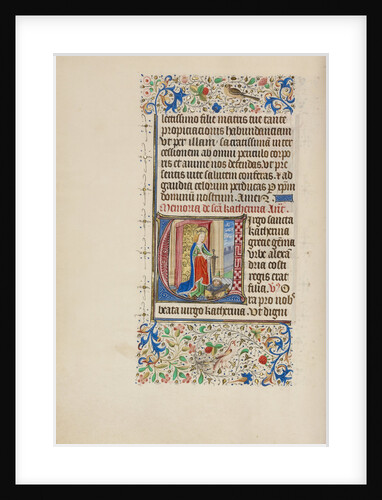 lectissimo filie matris tue tante
propiciacionis habundanciam
ut per illam sacratissimam inter
cessionem ab omni periculo corpo
ris et anime nos defendas ut pre
sentis vite salutem conferas et ad
gaudia celorum perducas p xpm
dominum nostrum Amen
Memoria de sca katherina Ant
Virgo sancta
katherina
grecie gema
urbe alexa
dria costi
regis erat
filia V O
ra pro nob
beata virgo katherina Ut digni